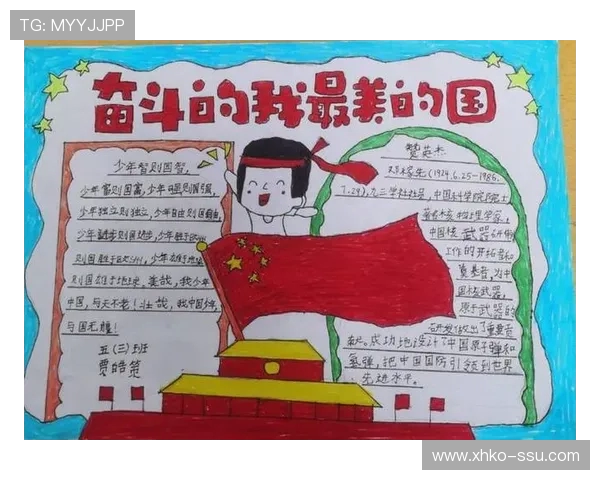 TG: MYYJJPP
奋斗的我最美的国
少年智则国智,
少年富则国富,少年强则国强,
少年独立则独立,少年自由则国自由,
少年进步则国进步,少年胜于欧洲
则国胜于欧洲,少年雄于地球
则国雄于地球,美哉,我少年
中国,与天不老!壮哉,我中国少年,
与国无疆!
五(三)班
贾皓
赞英杰
邓稼先(1924.6.25-1986.
7.29),九三学社社员,中国科学院院士,
著名核物理学家,
中国核武器研制
工作的开拓者和
奠基者,为中
国核武器,
原子武器的
研发做出了重要贡
献。成功地设计了中国原子弹和
氢弹,把中国国防引领到世界
先进水平。
www.xhko-ssu.com